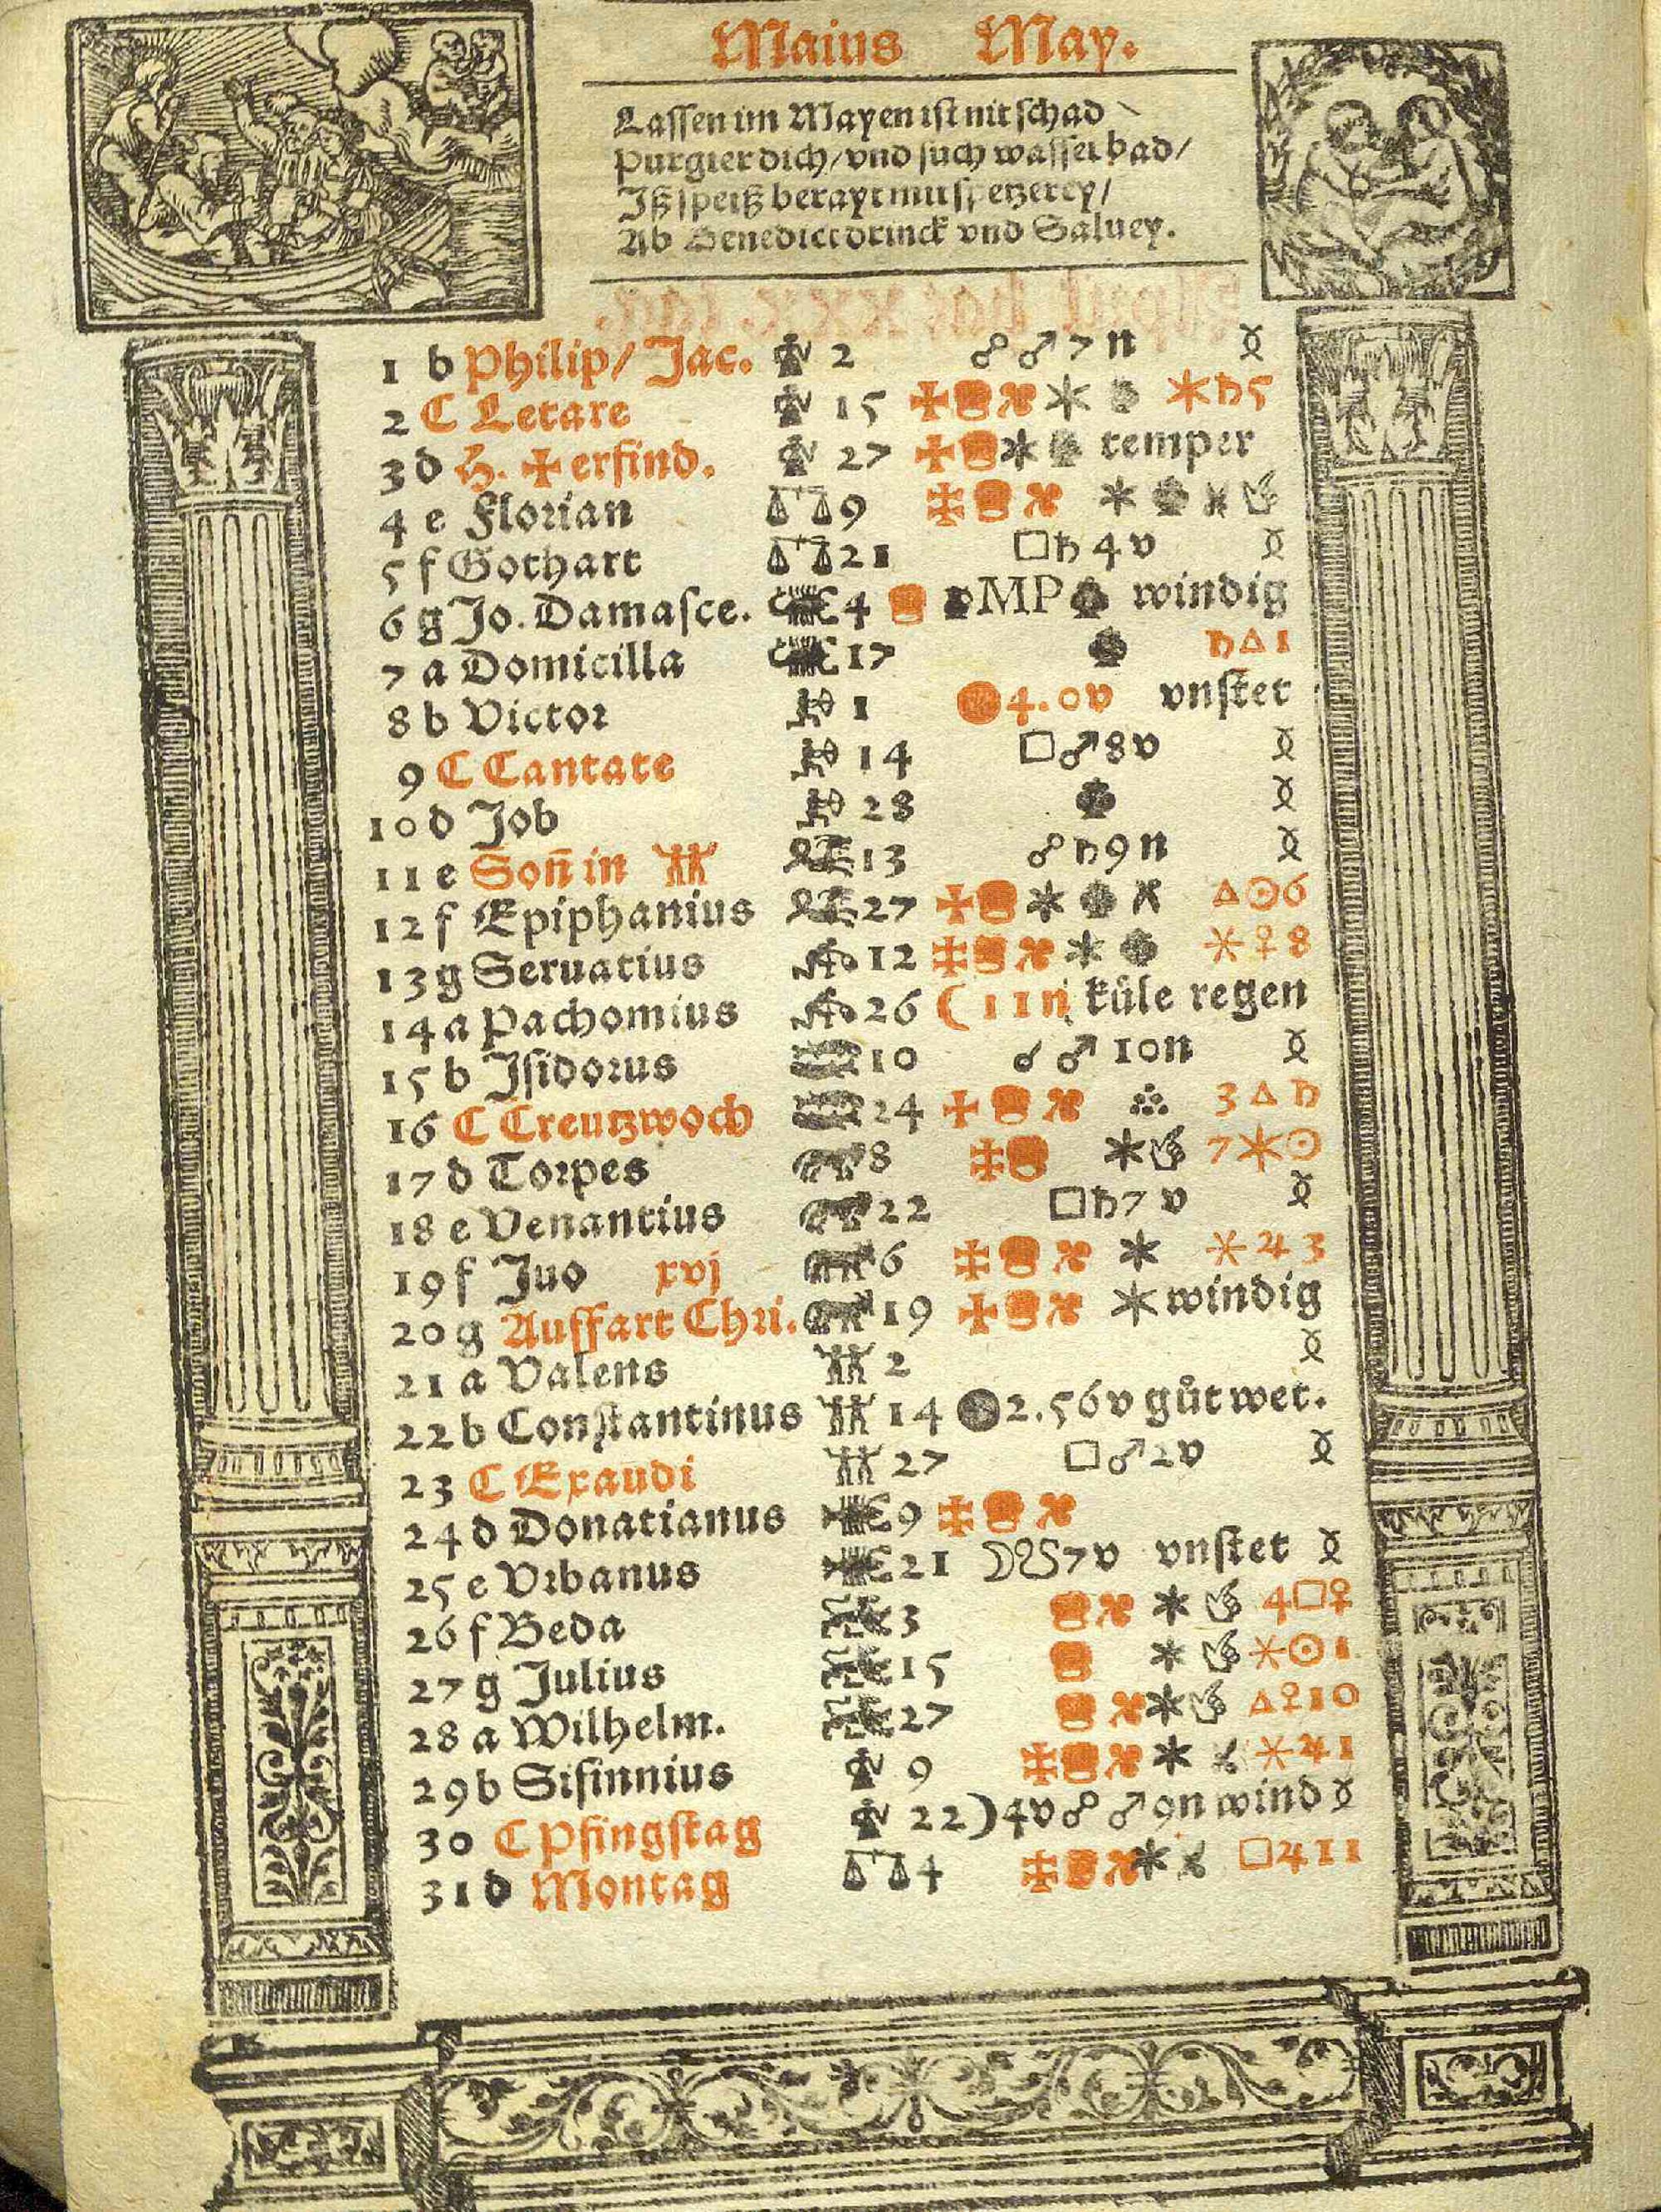 Maius May.
Lassen im Mayen ist nit schad
Purgier dich/vnd such wasser bad/
Jß speiß berayt mit spetzerey/
Ab Benedict drinck vnd Saluey.
1 b Philip/ Jac. 2 ☍♂7n
2 C Letare 15 ✠ * *♄5
3 d H. ✠ erfind. 27 ✠ * temper
4 e Florian 9 *
5 f Gothart 21 □♄4v
6 g Jo. Damasce. 4 MP windig
7 a Domicilla 17 ♄△1
8 b Victor 1 4.0v vnstet
9 C Cantate 14 □♂8v
10 d Job 28
11 e Soñ in ♊ 13 ☍♄9n
12 f Epiphanius 27 ✠ * △☉6
13 g Seruatius 12 * *♀8
14 a Pachomius 26 (11n küle regen
15 b Jsidorus 10 ☌♂10n
16 C Creutzwoch 24 ✠ 3△♄
17 d Torpes 8 * 7*☉
18 e Venantius 22 □♄7v
19 f Juo xvj 6 * *♃3
20 g Auffart Chri. 19 ✠ * windig
21 a Valens 2
22 b Constantinus 14 2.56v gůt wet.
23 C Exaudi 27 □♂2v
24 d Donatianus 9
25 e Vrbanus 21 7v vnstet
26 f Beda 3 * 4□♀
27 g Julius 15 * *☉1
28 a Wilhelm. 27 * △♀10
29 b Sisinnius 9 * *♃1
30 C Pfingstag 22 )4v☍♂9n wind
31 d Montag 4 * □♃11